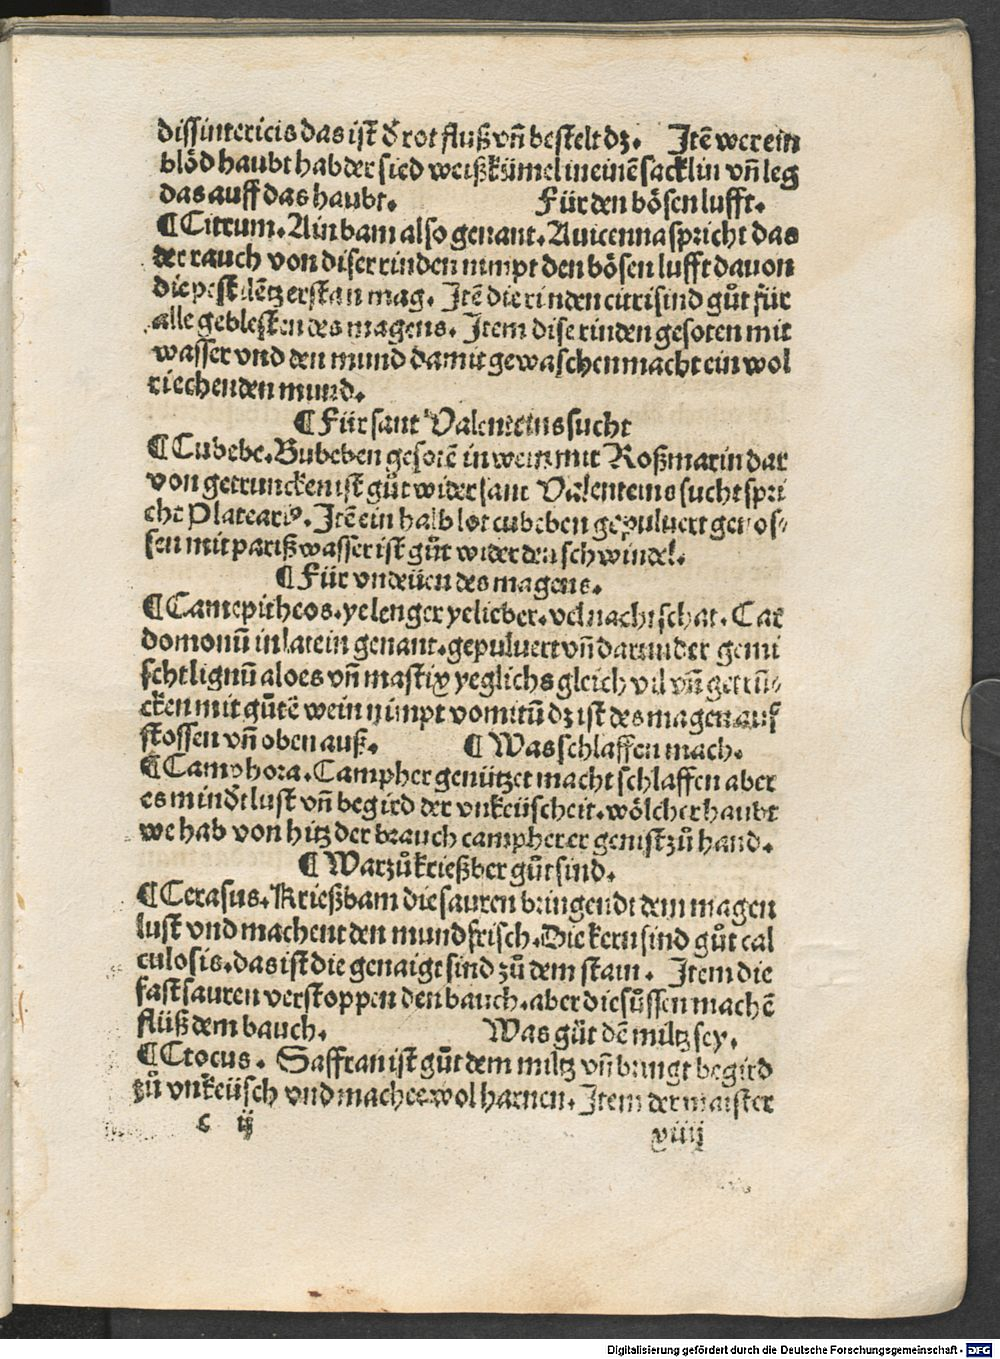 dissintericis das ist d̕ rot fluß vñ bestelt dz. Jtē wer ein
blöd haubt hab der sied weißkümel in einē sacklin vñ leg
das auff das haubt. Für den bösen lufft.
¶ Citrum. Ain bam also genant. Auicenna spricht das
der rauch von diser rinden nimpt den bösen lufft dauon
die pestilētz erstan mag. Jtē die rinden citri sind gůt für
alle geblesten des magens. Jtem dise rinden gesoten mit
wasser vnd den mund damit gewaschen macht ein wol
riechenden mund.
¶ Für sant Valenteins sucht
¶ Cubebe. Bubeben gesotē in wein mit Roßmarin dar
von getruncken ist gůt wider sant Valenteins sucht spri
cht Platearꝰ. Jtē ein halb lot cubeben gepuluert genos⸗
sen mit pariß wasser ist gůt wider den schwindel.
¶ Für vndeüen des magens.
¶ Camepitheos. yelenger yelieber. vel nachtschat. Car
domonū in latein genant. gepuluert vñ darunder gemi
scht lignū aloes vñ mastix yeglichs gleich vil vñ getrū⸗
cken mit gůtē wein nimpt vomitū dz ist des magen auf
stossen vñ oben auß. ¶ Was schlaffen mach.
¶ Camphora. Campher genützet macht schlaffen aber
es mind̕t lust vñ begird der vnkeüscheit. wölcher haubt
we hab von hitz der brauch campher er genist zů hand.
¶ Warzů krießber gůt sind.
¶ Cerasus. Krießbam die sauren bringendt dem magen
lust vnd machent den mund frisch. Die kern sind gůt cal
culosis. das ist die genaigt sind zů dem stain. Jtem die
fast sauren verstoppen den bauch. aber die sůssen machē
flüß dem bauch. Was gůt dē miltz sey.
¶ Crocus. Saffran ist gůt dem miltz vñ bringt begird
zů vnkeüsch vnd machet wol harnen. Jtem der maister
c iij
xiiij
Digitalisierung gefördert durch die Deutsche Forschungsgemeinschaft - DFG